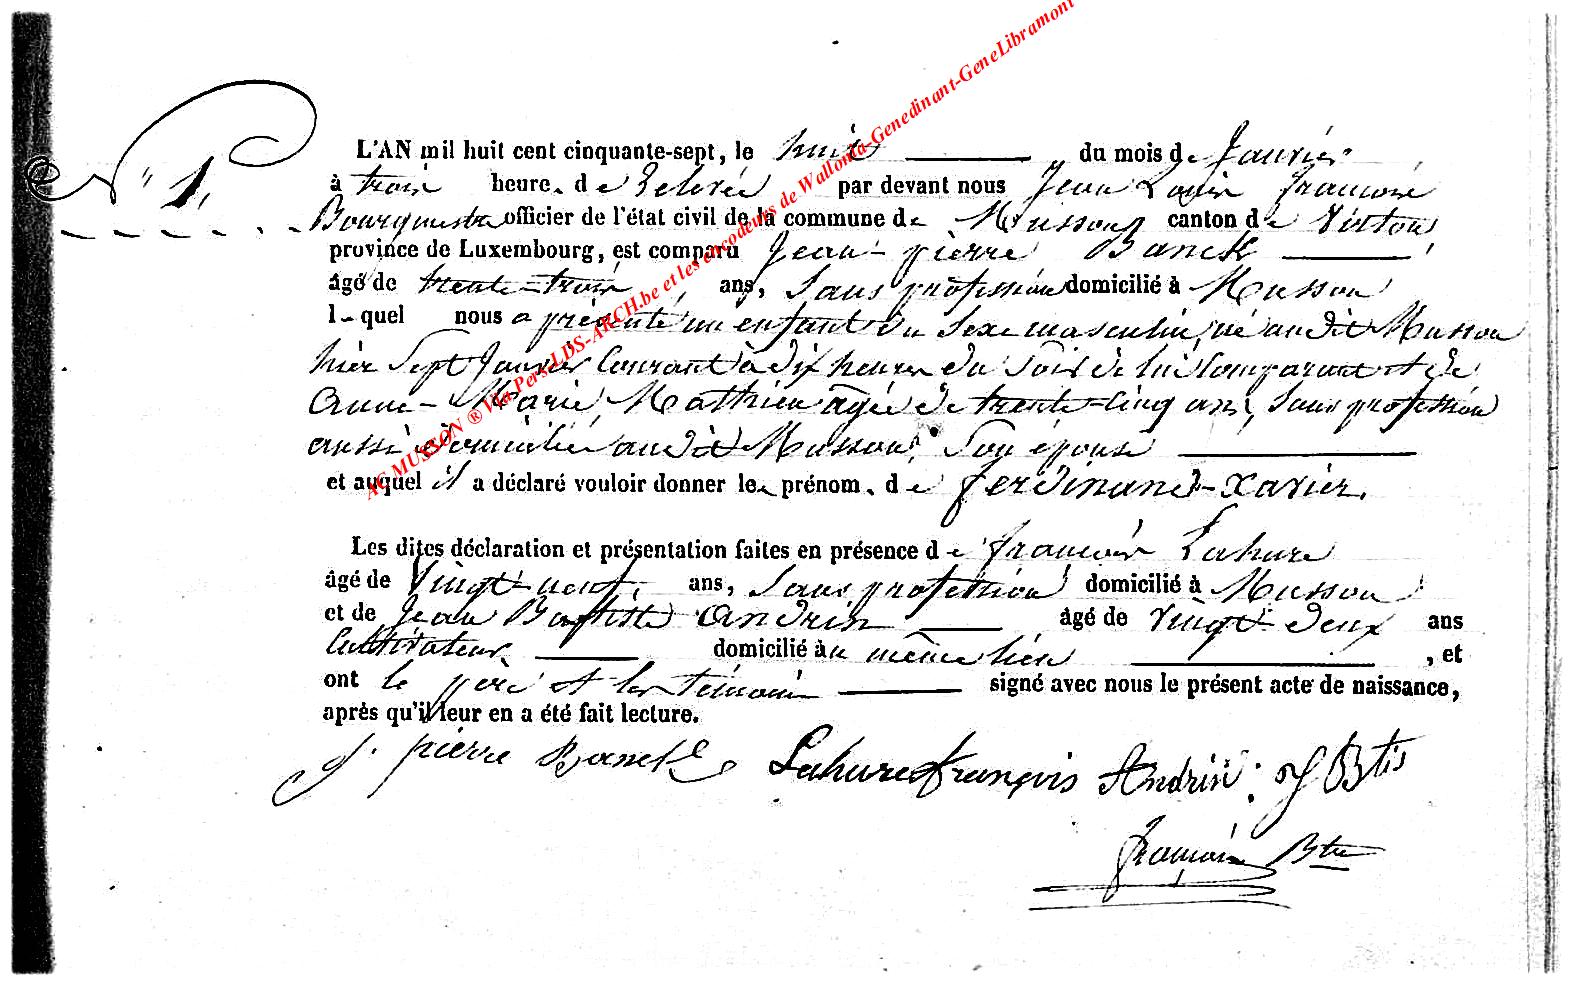 N° 1.
L'AN mil huit cent cinquante-sept, le huit du mois de Janvier
à trois heures de relevée par devant nous Jean Louis François
Bourgmestre officier de l'état civil de la commune de Musson canton de Virton
province de Luxembourg, est comparu Jean-pierre Banck
âgé de trente-trois ans, Sans profession domicilié à Musson
lequel nous a présenté un enfant du Sexe masculin, né audit Musson
hier Sept Janvier Courant à dix heures du Soir de lui Comparant et de
Anne-Marie Mathieu agée de trente-Cinq ans, Sans profession
aussi domiciliée audit Musson, Son épouse
et auquel il a déclaré vouloir donner les prénoms de ferdinand-Xavier.
Les dites déclaration et présentation faites en présence de françois Lahure
âgé de Vingt-neuf, ans, Sans profession domicilié à Musson
et de Jean Baptiste Andrin âgé de Vingt-deux ans
Cultivateur domicilié au même lieu , et
ont le père et les témoins signé avec nous le présent acte de naissance,
après qu'il leur en a été fait lecture.
J. pierre Banck Lahure françois Andrin : J Btis
françois Btre
AC MUSSON ® Via Pers-LDS-ARCH.be et les encodeurs de Wallonia-Genedinant-GeneLibramont